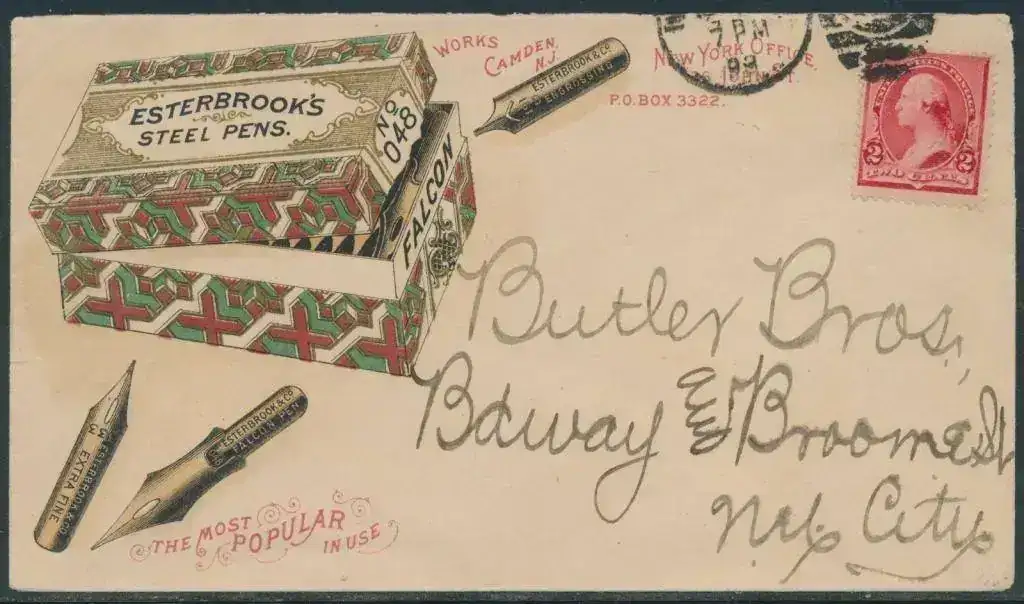 ESTERBROOK'S
STEEL PENS.
No
048
FALCON
WORKS
CAMDEN,
N.J.
ESTERBROOK & CO
ENGROSSING
NEW YORK OFFICE,
ST.
P.O. BOX 3322.
7 PM
93
2 2
TWO CENTS
Butler Bros.,
Bdway & Broome St
N.Y. City
333
ESTERBROOK & CO
EXTRA FINE
ESTERBROOK & CO
FALCON PEN
THE MOST
POPULAR
IN USE